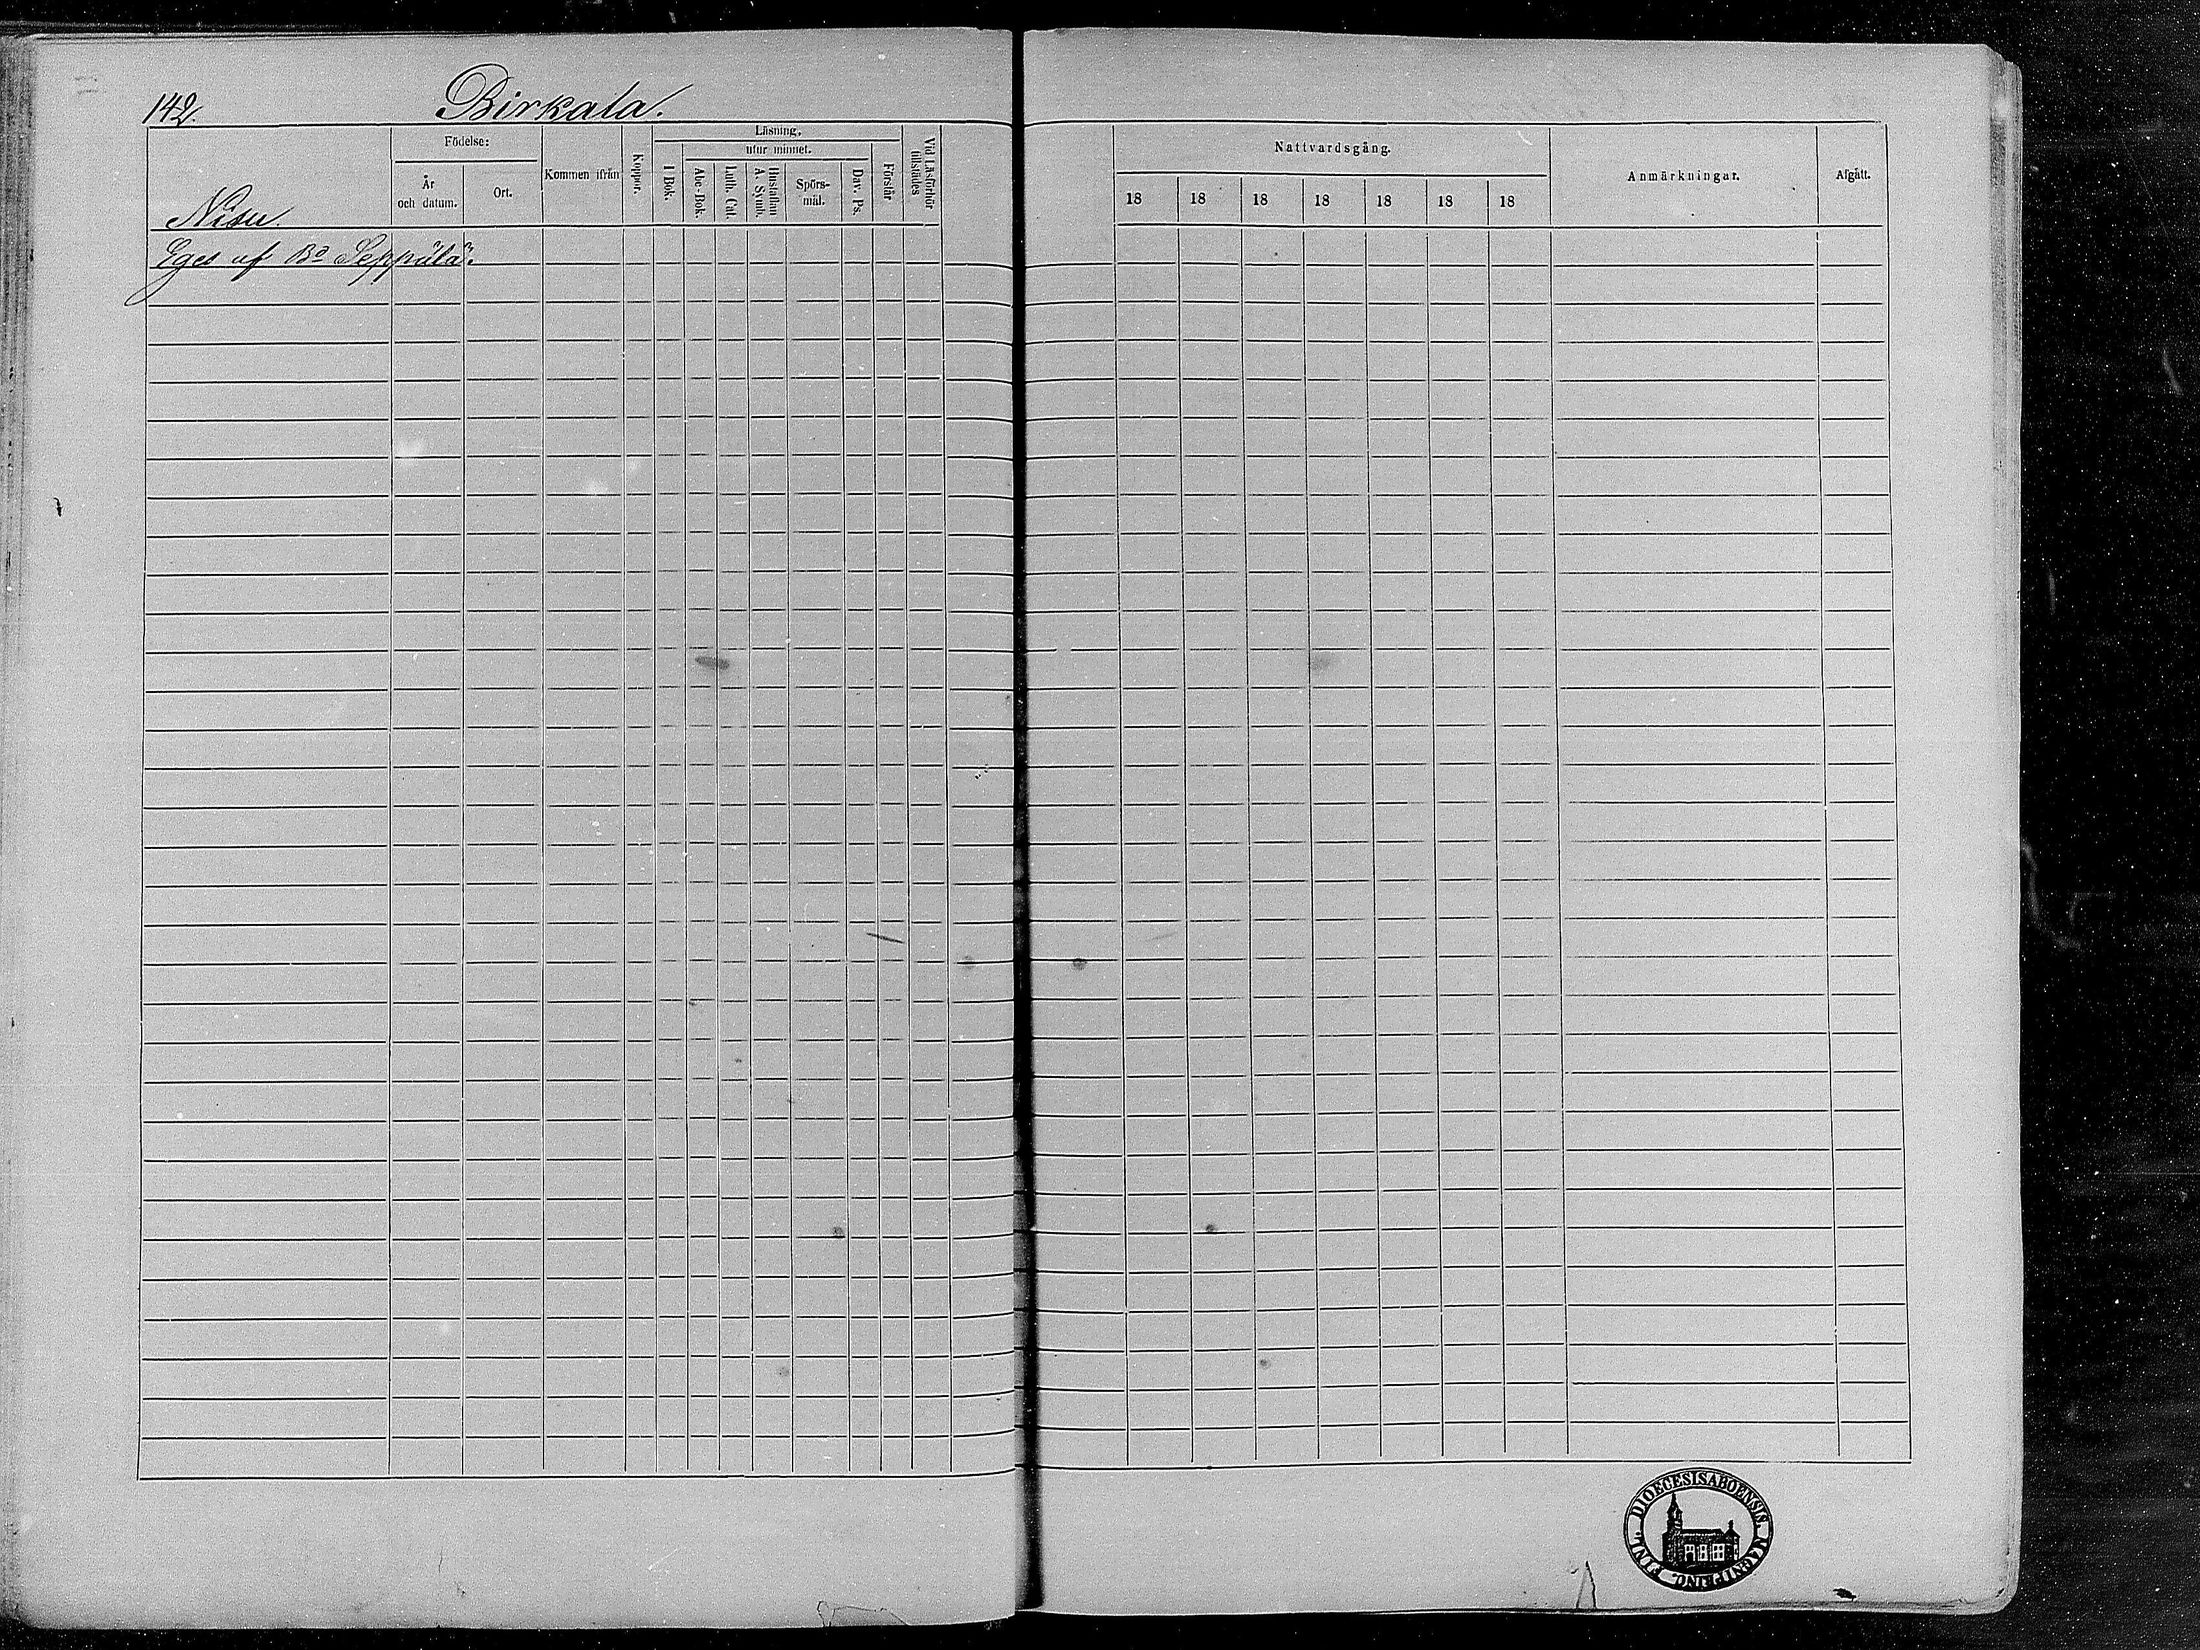 142.
Birkala.
Nisu.
Födelse:
År och datum.
Ort.
Kommen ifrån
Koppor.
Läsning.
utur minnet.
I Bok.
Abc-Bok.
Luth. Cat.
Hustaflan A. Symb.
Spörs-mål.
Dav. Ps.
Förstår
Vid Läsförhör tillstädes
Nattvardsgång.
18 18 18 18 18 18 18
Anmärkningar.
Afgått.
Eges af Bo Seppälä.
DIOECESIS ABOENSIS. MAGNI PRINC. FINL.